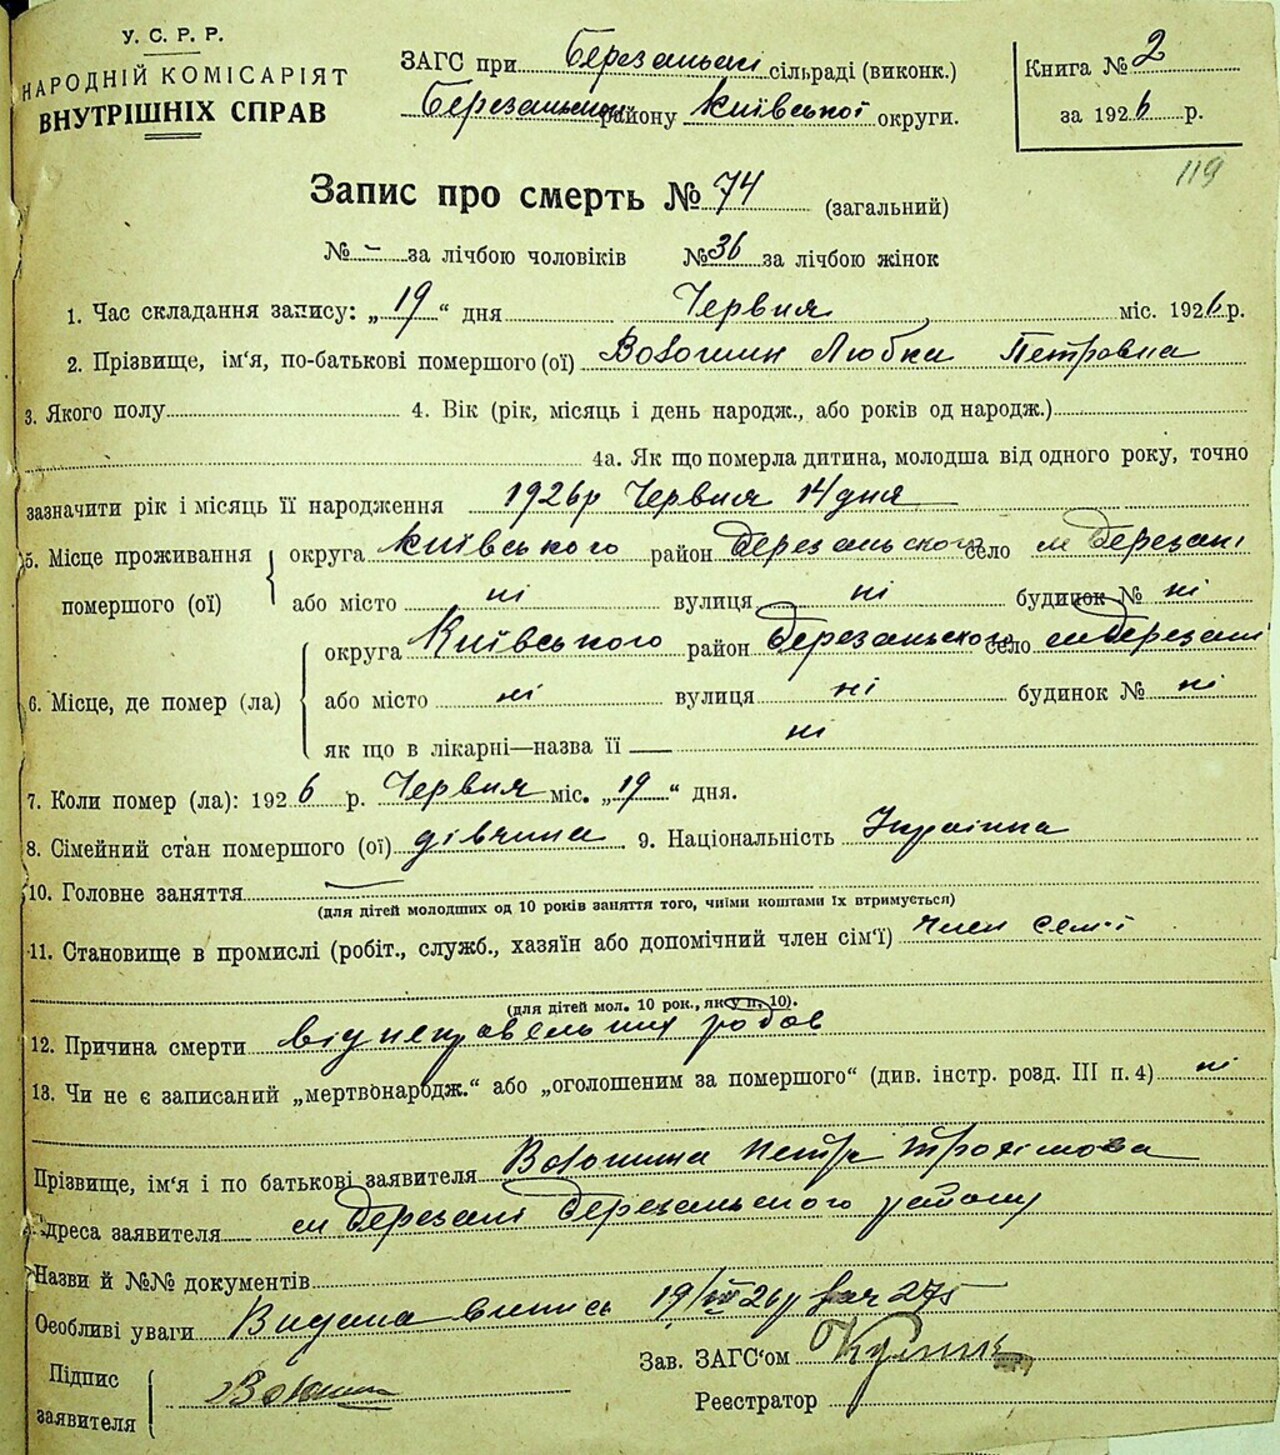 У. С. Р. Р.
НАРОДНІЙ КОМІСАРІЯТ
ВНУТРІШНІХ СПРАВ
ЗАГС при Березаньскі сільраді (виконк.)
Березанського району Київської округи.
Книга № 2
за 1926 р.
119
Запис про смерть № 74 (загальний)
№ - за лічбою чоловіків № 36 за лічбою жінок
1. Час складання запису: „19“ дня Червня міс. 1926 р.
2. Прізвище, ім'я, по-батькові помершого (ої) Волошин Любка Петровна
3. Якого полу 4. Вік (рік, місяць і день народж., або років од народж.)
4а. Як що померла дитина, молодша від одного року, точно
зазначити рік і місяць її народження 1926р Червня 14 дня
5. Місце проживання помершого (ої) округа Київського район Березаньского село м Березані
або місто ні вулиця ні будинок № ні
6. Місце, де помер (ла) округа Київського район Березаньского село м Березані
або місто ні вулиця ні будинок № ні
як що в лікарні—назва її ні
7. Коли помер (ла): 1926 р. Червня міс. „19“ дня.
8. Сімейний стан помершого (ої) дівчина 9. Національність Українка
10. Головне заняття —
(для дітей молодших од 10 років заняття того, чиїми коштами їх втримується)
11. Становище в промислі (робіт., служб., хазяїн або допомічний член сім'ї) член семї
(для дітей мол. 10 рок., як у п. 10).
12. Причина смерти від неправельних родов
13. Чи не є записаний „мертвонародж.“ або „оголошеним за помершого“ (див. інстр. розд. III п. 4) ні
Прізвище, ім'я і по батькові заявителя Волошина Петра Трохімова
Адреса заявителя м Березані Березаньского району
Назви й №№ документів
Особливі уваги Видана выпись 19/VI 26р 275
Підпис заявителя Волошин
Зав. ЗАГС'ом
Реєстратор